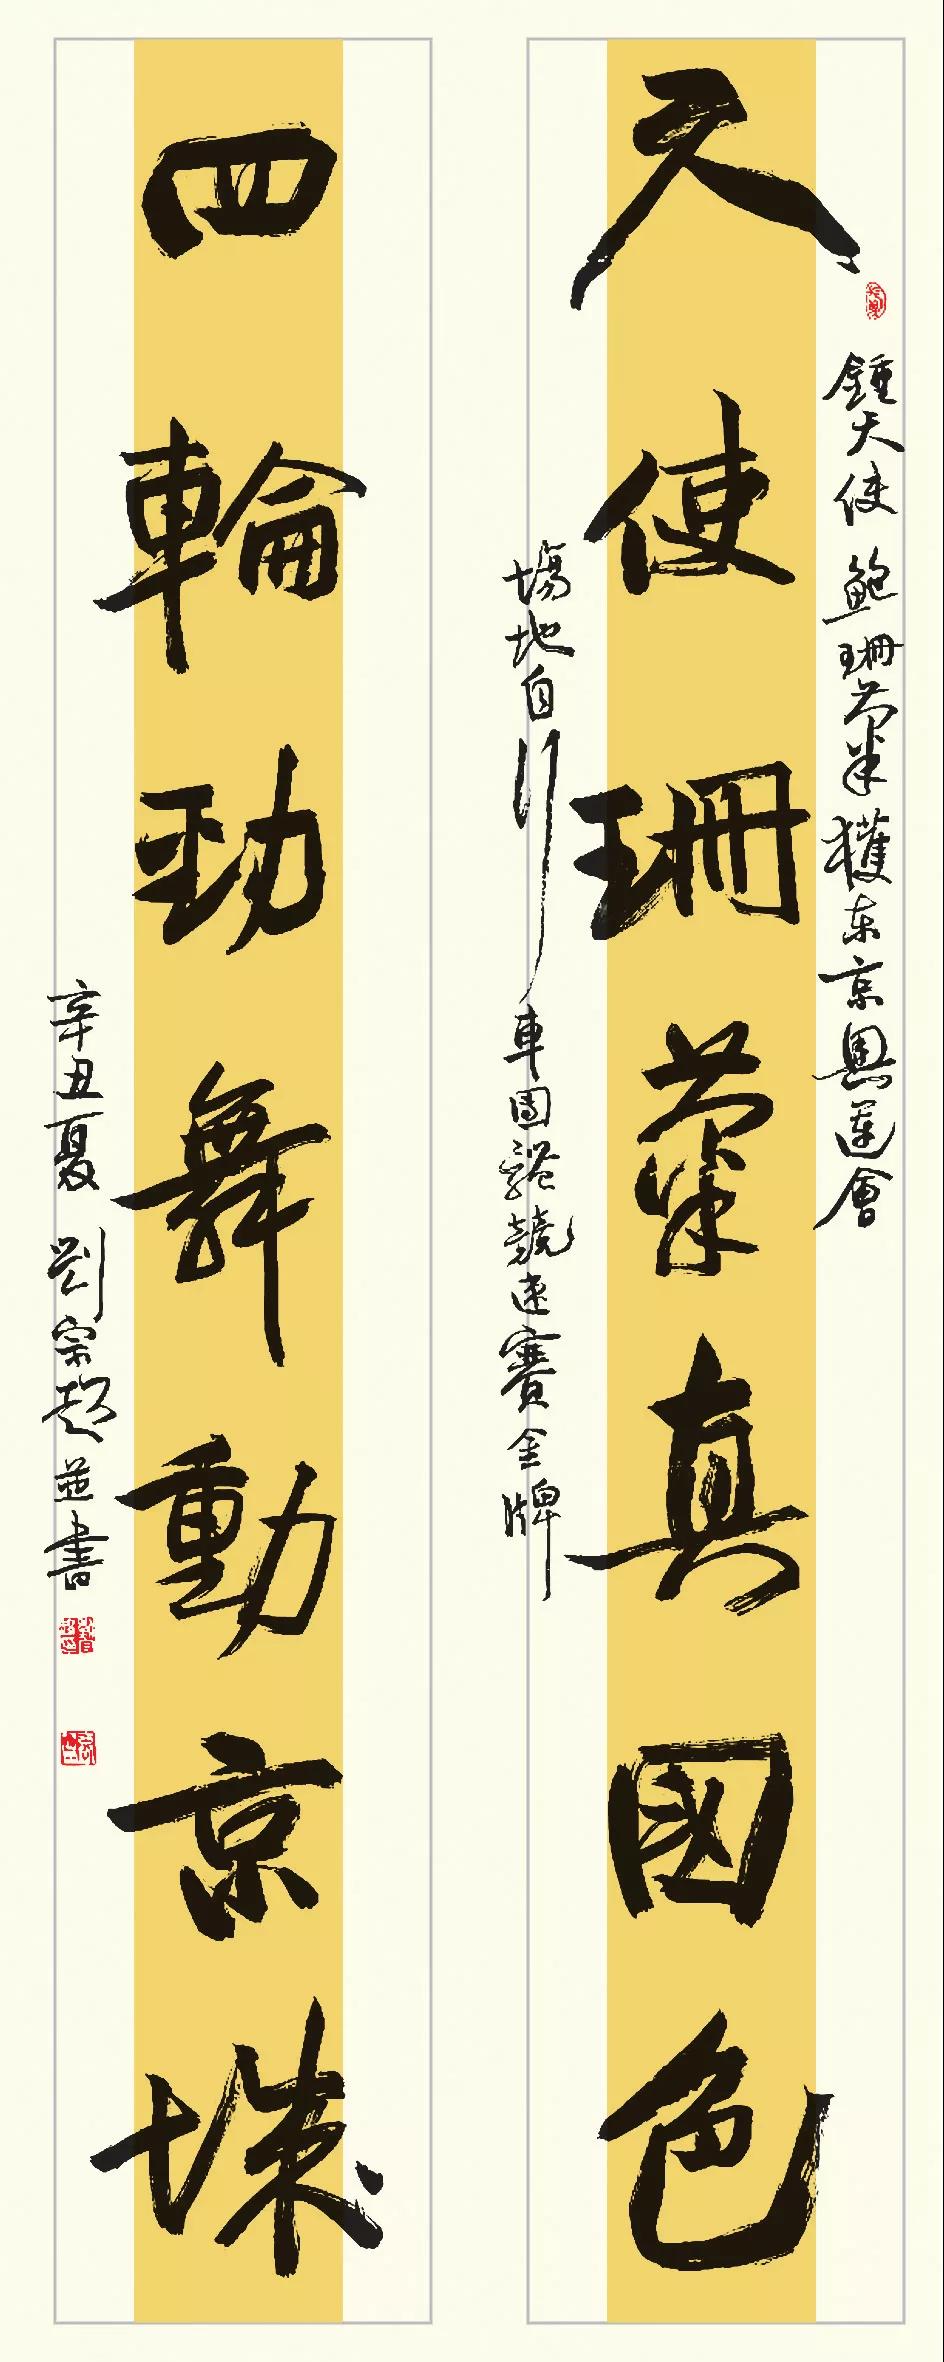 天使珊菊真國色
四輪勁舞動京城
鍾天使 鮑珊菊獲东京奧運會
場地自行車團體競速賽金牌
辛丑夏 劉宗超並書